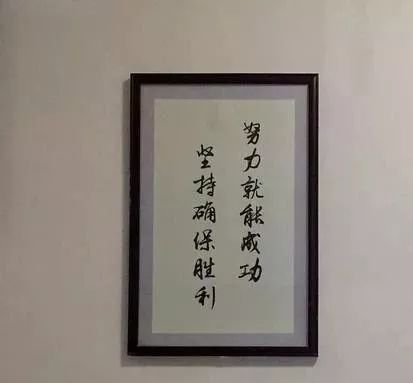 努力就能成功
坚持确保胜利